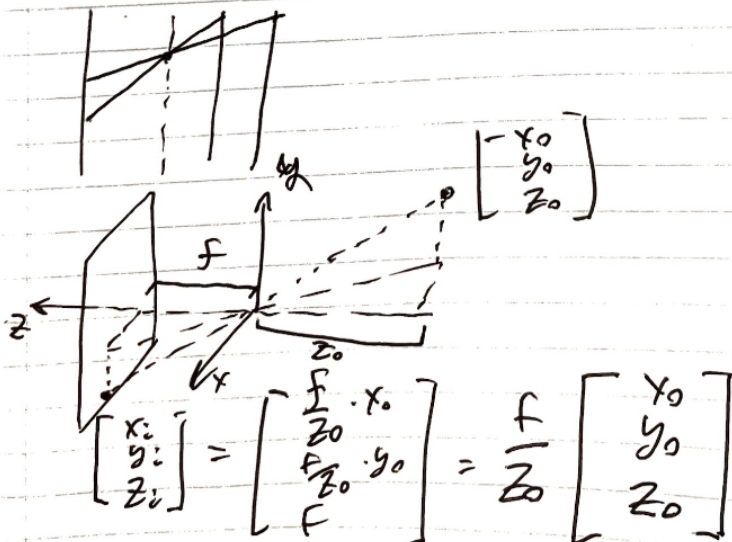 y
[ x₀
y₀
z₀ ]
f
z
x
z₀
[ xᵢ
yᵢ
zᵢ ] = [ f/z₀ · x₀
f/z₀ · y₀
f ] = f/z₀ [ x₀
y₀
z₀ ]